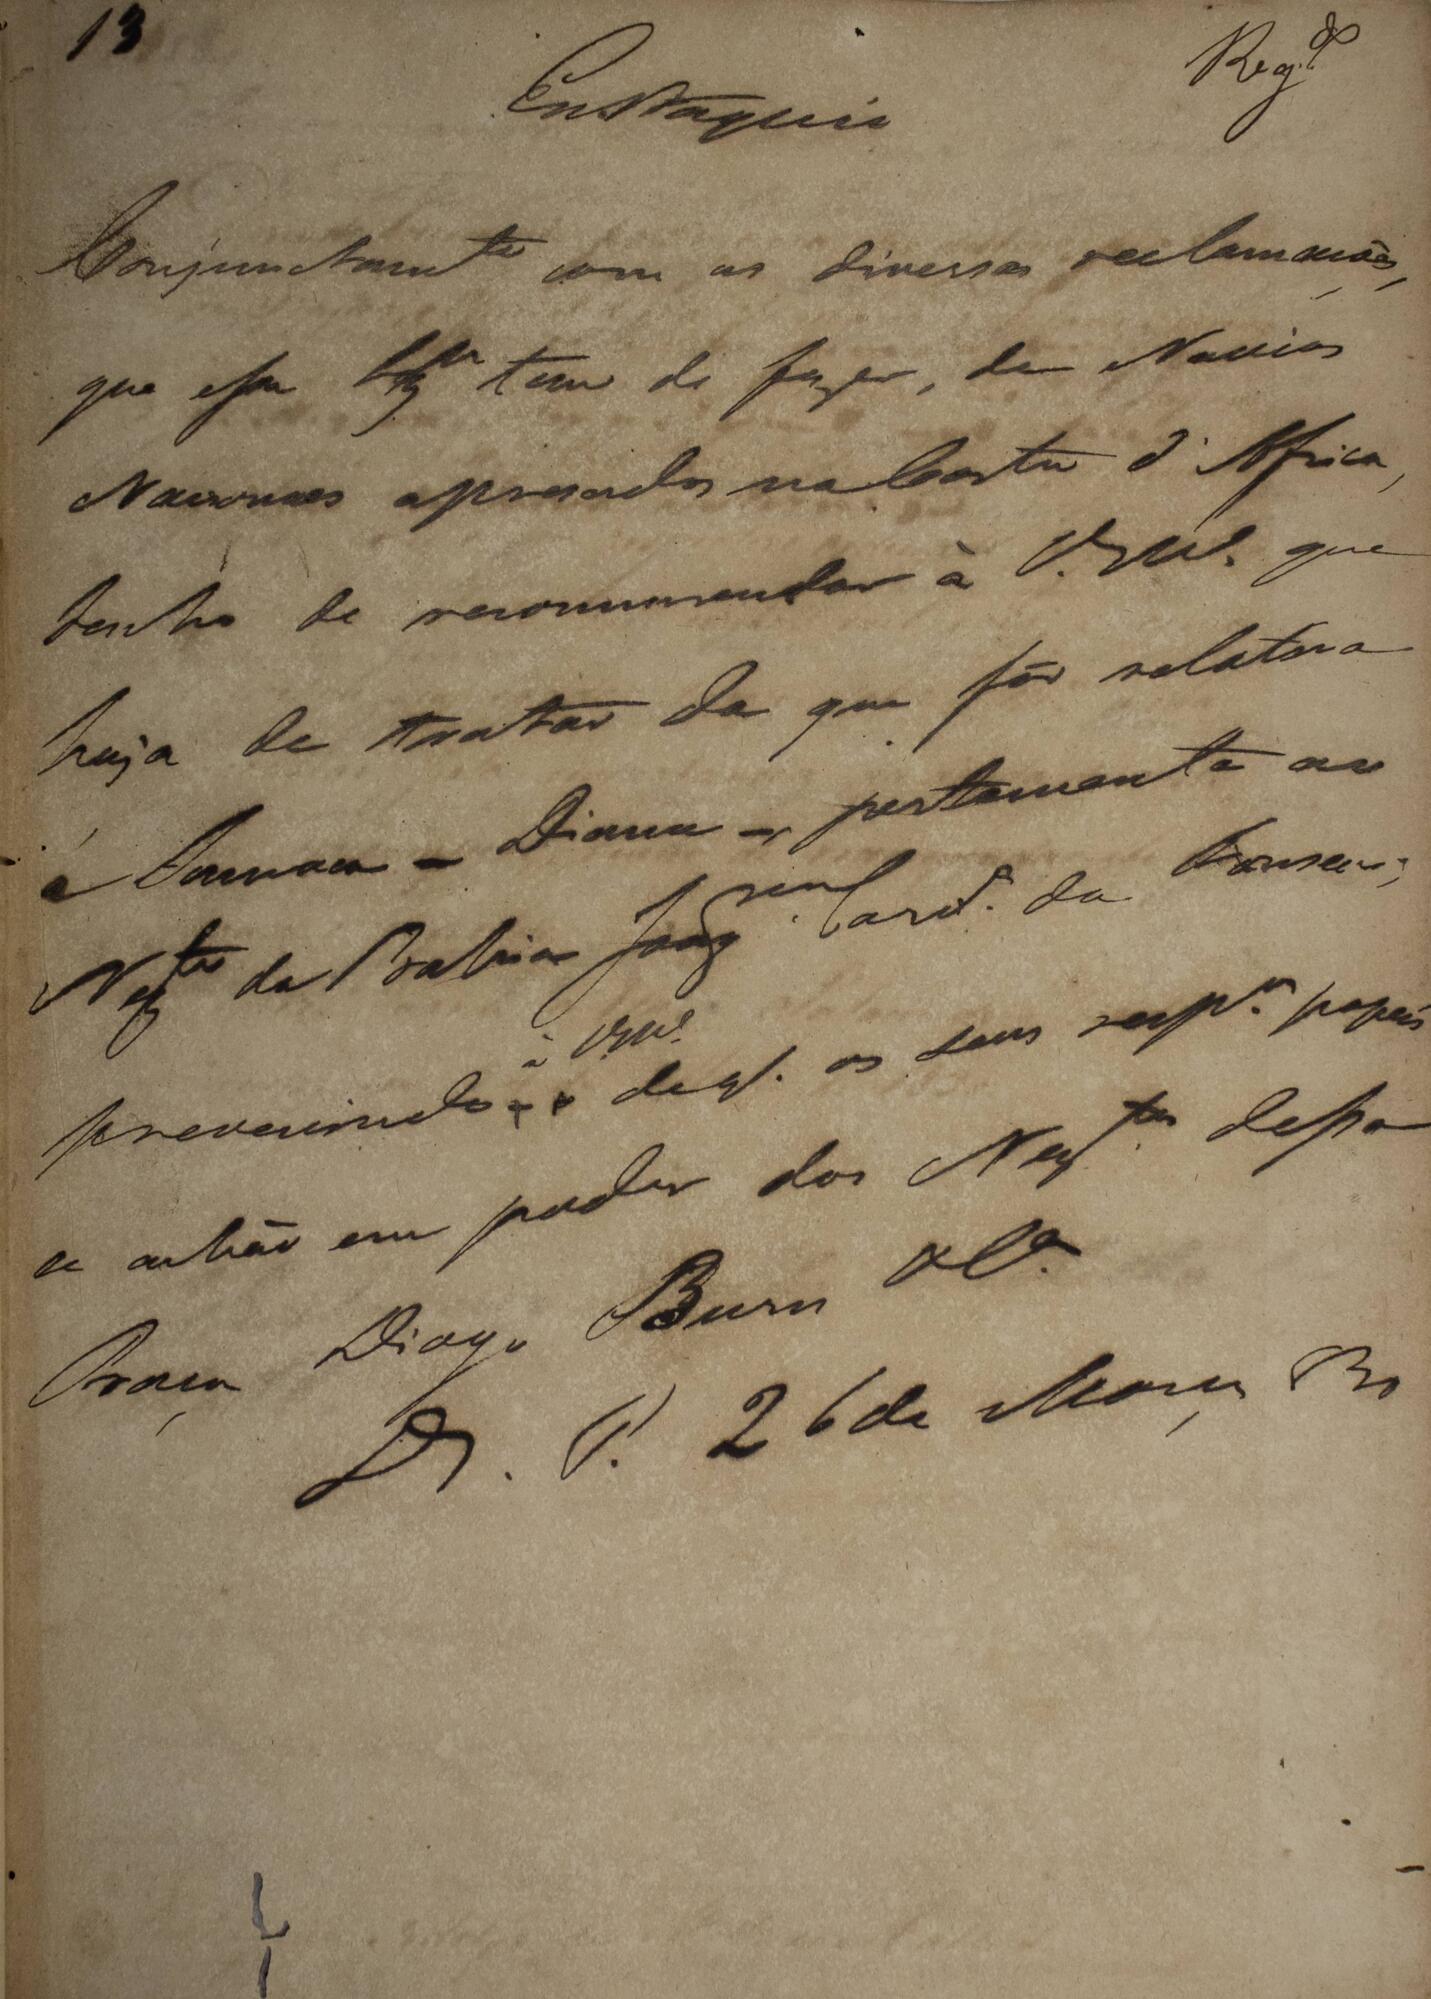 13
Reg.do
Eustaquio
Conjunctamte com as diversas reclamações,
que essa tem de fazer, de Navios
Nacionaes apresados na Costa d'Africa,
tenho de recommendar à V. Mce. que
haja de tratar da que fôr relativa
á Sumaca - Diana -, pertencente ao
Negte da Bahia Joaqm. Card.o da Fonseca;
prevenindo à VMce. de q'. os seus resp.os papeis
se achão em poder dos Negtes. dessa
Praça Diogo Burn & Ca.
D. G. 26 de Março 30